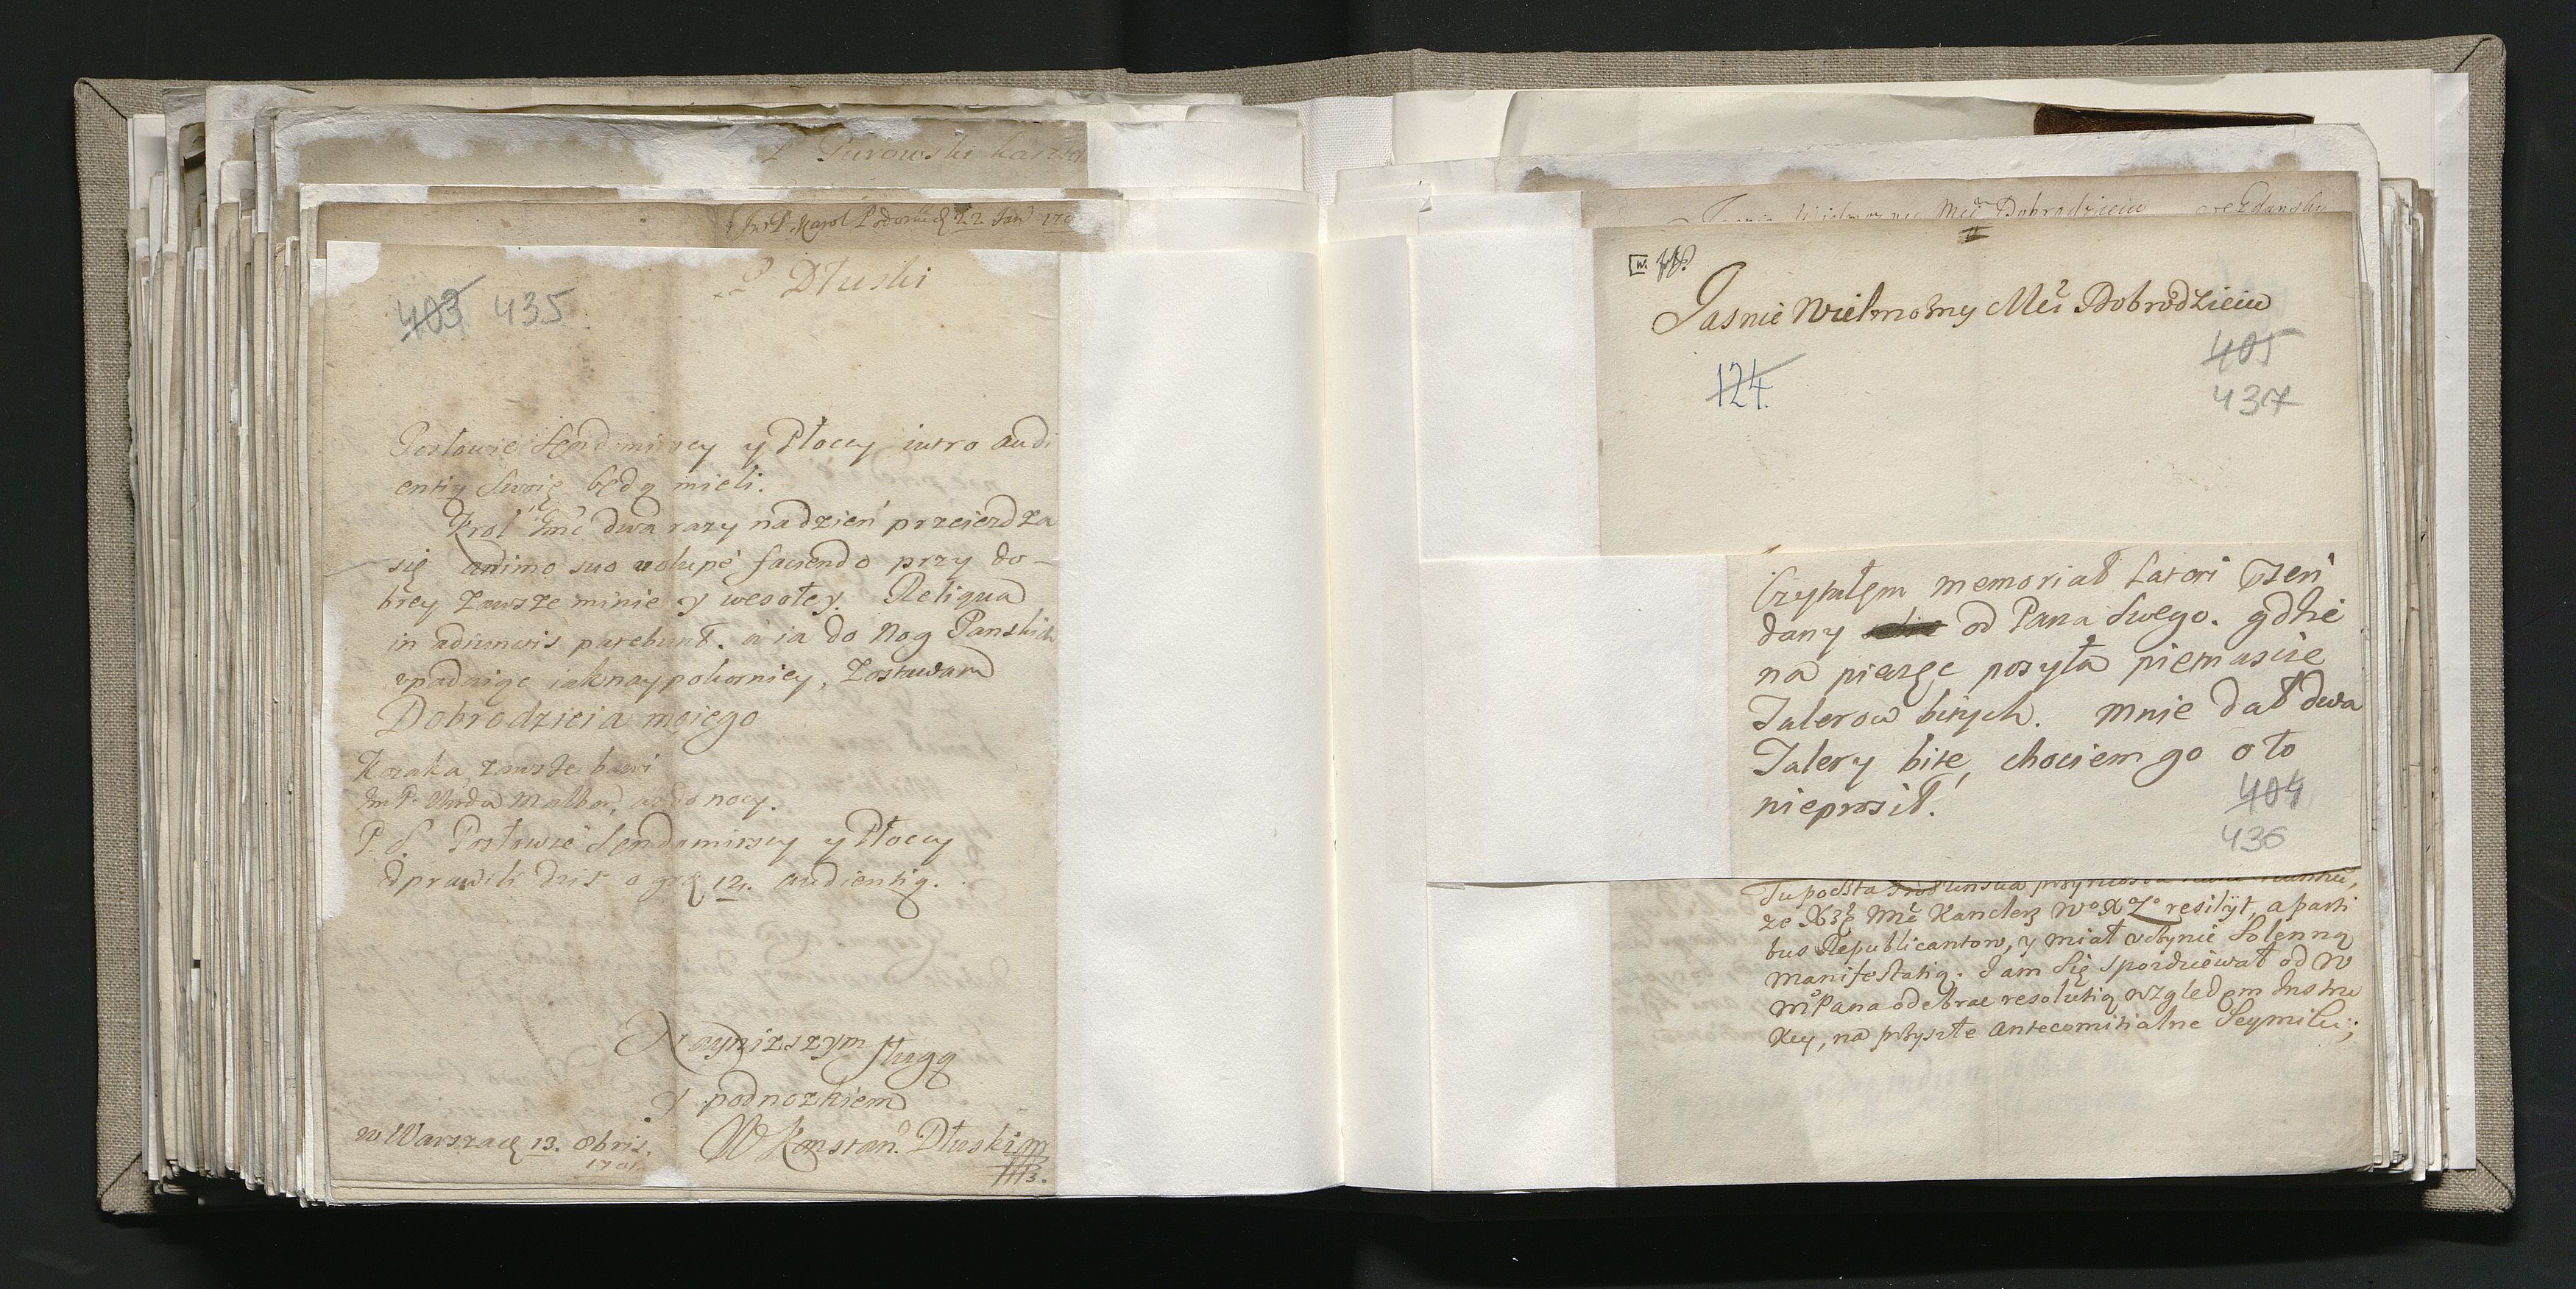 P Turowski
P. Karol Podoski
P Dłuski
403 435
Posłowie Sendomirscy y Płoccy iutro audi
entią Swoię będą mieli.
Krol Jmć dwa razy nadzień przeiezdza
się animo suo volupé faciendo przy do-
brey zawsze minie y wesołey. Reliqua
in adiunctis patebunt. à ia do Nog Panskich
upadaiąc iaknaypokorniey, Zostawam
Dobrodzieia moiego
Kozaka zawsze bawi
Jm P. Malbor. az do nocy.
P. S. Posłowie Sendomirscy y Płoccy
odprawili dzis o godz 12. audientią.
Naynizszym sługą
y podnozkiem
w Warszaē 13. 8bris.
1701.
W Konstan. Dłuskim
Mei Dobrodzieiu
Jasnie Wielmozny Mei Dobrodzieiu
405
124.
437
Czytałem memoriał Latori
dany od Pana Swego. gdzie
na pieczęc posyła piętnascie
Talerow bitych. mnie dał dwa
Talery bite, chociem go o to
nieprosił.
404
436
Tu poczta
ze Xże Mć Kanclerz W° X° L° resilijt, a parti
bus Republicantow, y miał uczynić Solenną
manifestatią. Jam Się spodziewał od W
M° Pana odebrac resolutią względem Instru
Xcy, na przyszłe Antecomitialne Seymiki;